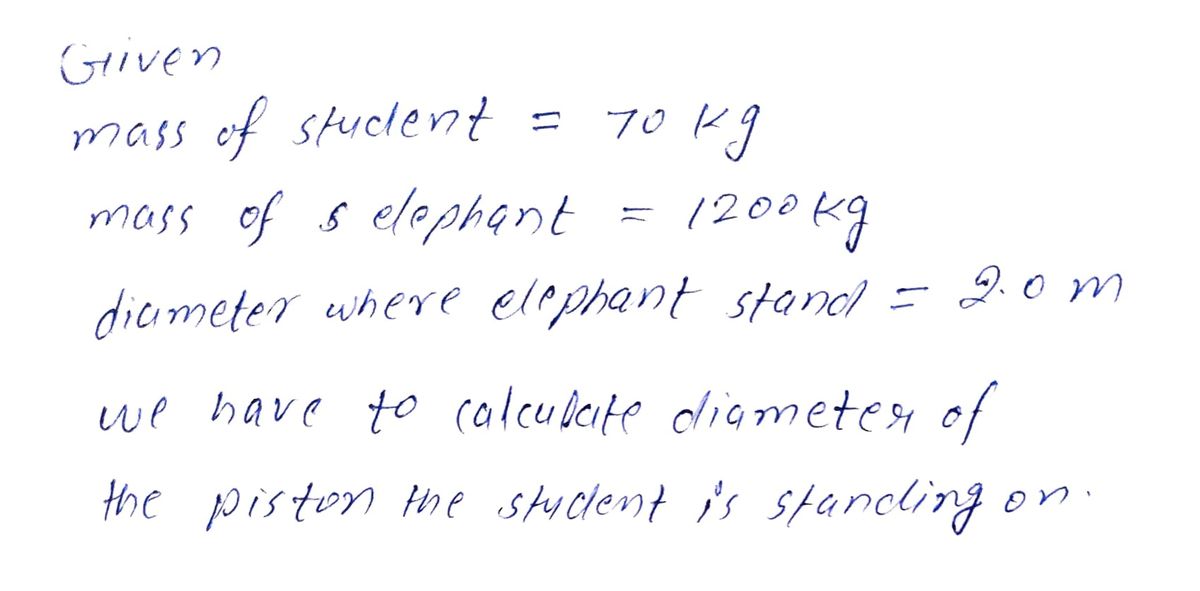 Given
mass of student = 70 kg
mass of s elephant = 1200 kg
diameter where elephant stand = 2.0 m
we have to calculate diameter of
the piston the student is standing on.